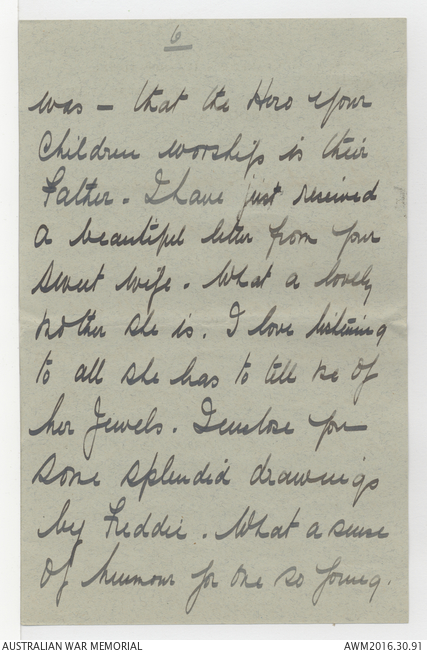 6
was - that the Hero your
Children worships is their
Father. I have just received
a beautiful letter from your
sweet wife. What a lovely
Mother she is. I love listening
to all she has to tell me of
her Jewels. I enclose you
some splendid drawings
by Freddie. What a sense
of humour for one so young.
AUSTRALIAN WAR MEMORIAL
AWM2016.30.91